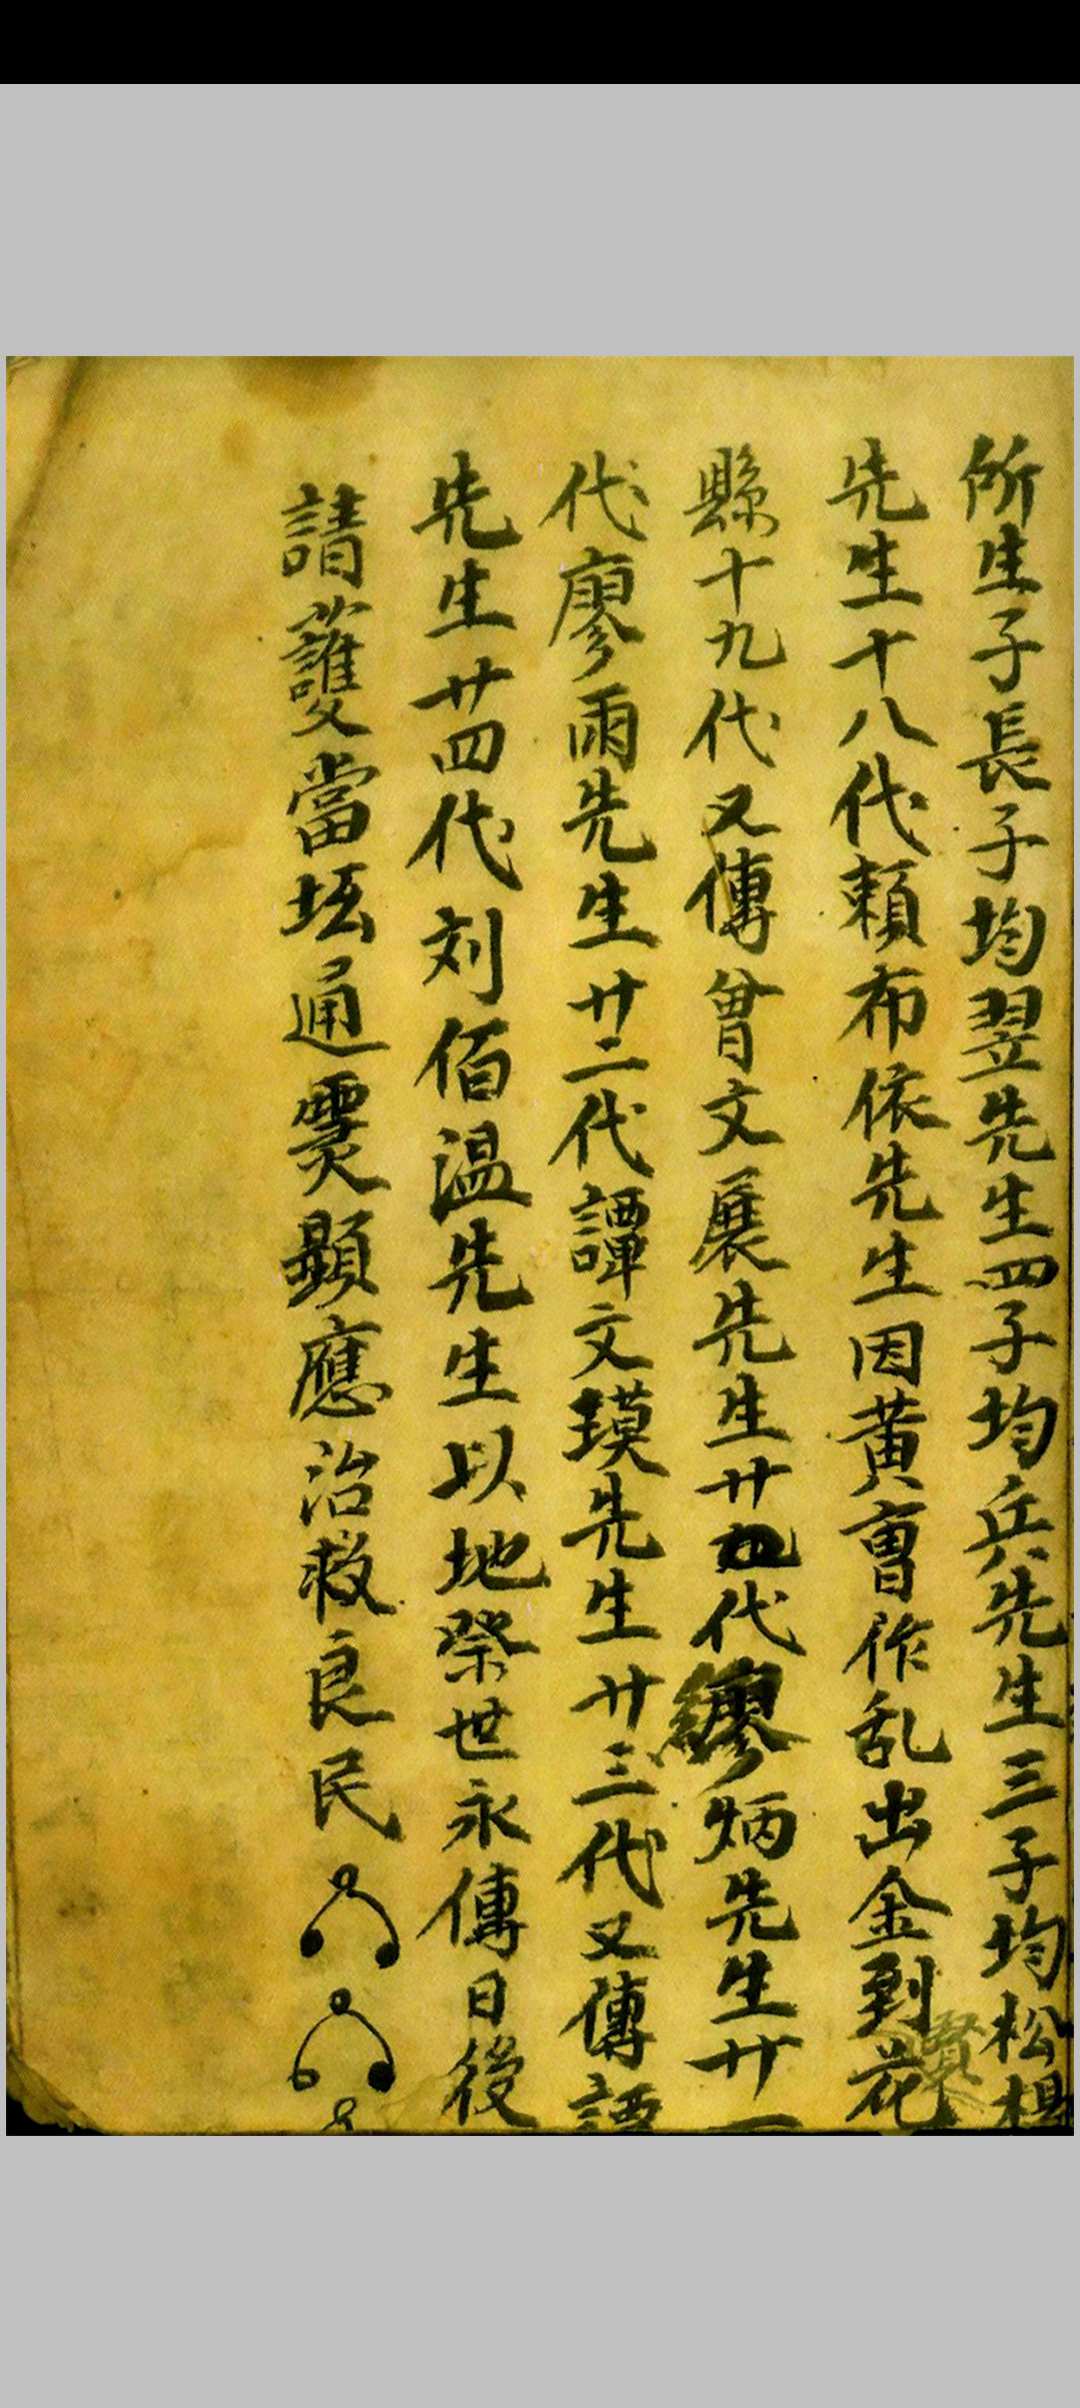 所生子長子均翌先生四子均兵先生三子均松楊
先生十八代頼布依先生因黄曺作乱出金到花
縣十九代又傳曾文展先生廿代廖炳先生廿一
代廖雨先生廿二代譚文瑛先生廿三代又傳譚
先生廿四代刘佰温先生以地祭世永傳日後
請護當坛通霊顕應治救良民